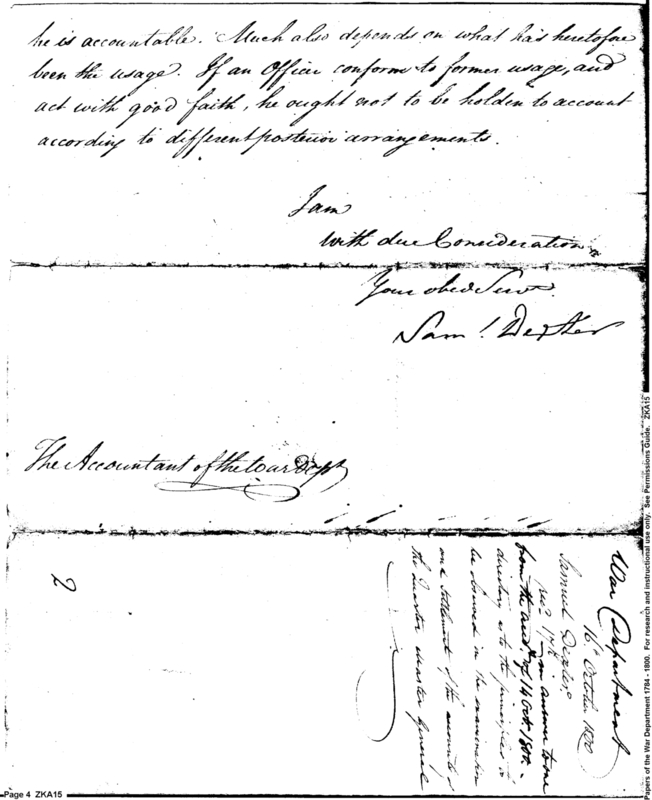 he is accountable. Much also depends on what has heretofore
been the usage. If an Officer conform to former usage, and
act with good faith, he ought not to be holden to account
according to different posterior arrangements.
I am
with due Consideration
Your obed Servt.
Saml. Dexter
The Accountant of the War Dept
War Department
16 October 1800
Samuel Dexter
recd. 17th in answer to one
from the acct. of 14 Oct. 1800.
directory as to the principles to
be observed in the examination
and settlement of the accounts of
the Quarter Master General
2
Page 4 ZKA15
Papers of the War Department 1784 - 1800. For research and instructional use only. See Permissions Guide. ZKA15